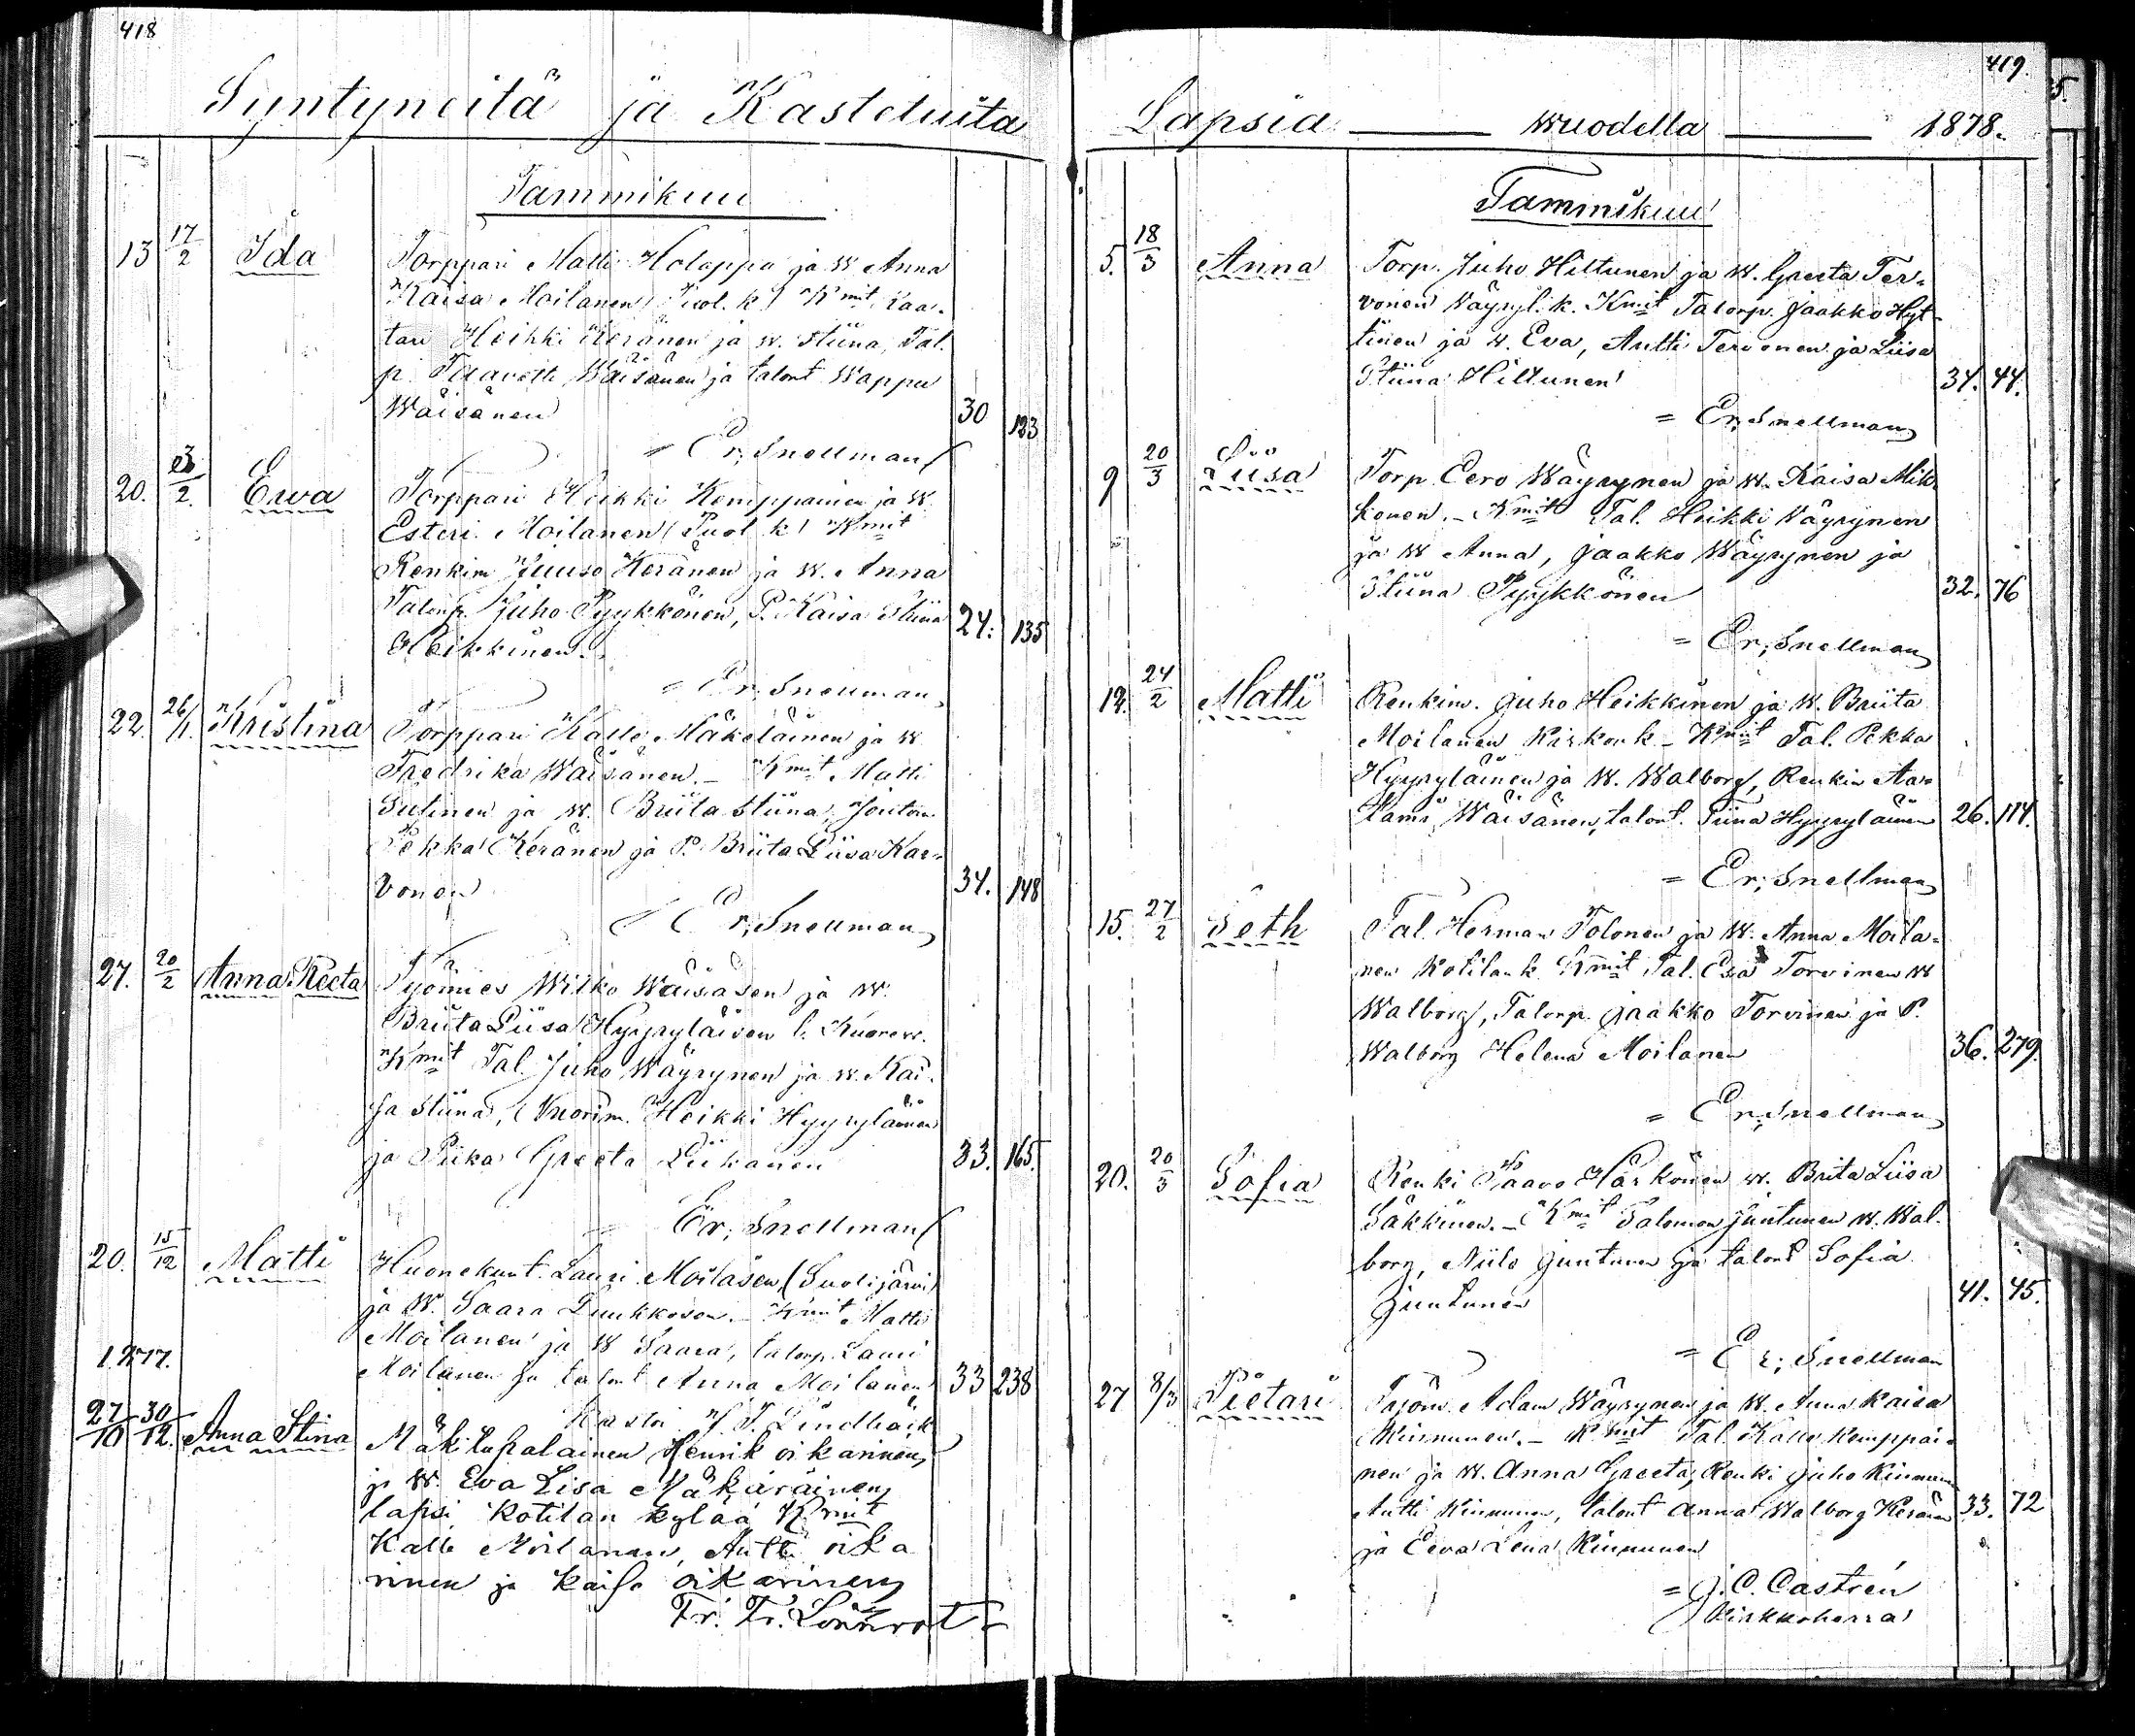 418
Syntyneitä ja Kasteluita
Tammikuu
13 17/2 Ida Torppari Matti Holappa ja W. Anna
Kaisa Moilanen Puol. k. Kmit Kaa-
tari Heikki Keränen ja w. Stiina, Tal.
p. Taavetti Wäisänen ja talont Wappu
Wäisänen 30 123
= Er. Snellman
20. 3/2. Ewa Torppari Heikki Kemppainen ja W.
Esteri Moilanen (Puol k) Kmit
Renkim Juuso Keränen ja w. Anna
Talonp. Juho Pyykkönen, P. Kaisa Stiina
Heikkinen. 24. 135
= Er. Snellman
22. 26/1. Kristina Torppari Kalle Mäkeläinen ja W
Fredrika Wäisänen. – Kmit Matti
Sutinen ja W. Briita Stiina,
Pekka Keränen ja P. Briita Liisa Kar-
vonen 34. 148
Er; Snellman
27. 20/2 Anna Reeta Työmies Wilko Wäisäsen ja W.
Briita Liisa Hyyryläisen l. Kuorew.
Kmit Tal. Juho Wäyrynen ja w. Kai-
sa Stiina, Nuorim. Heikki Hyyryläinen
ja Piika Greeta Liikanen 33. 165.
= Er; Snellman
20. 15/12 Matti Huonekunt. Lauri Moiläsen, (Suolijärvi)
ja W. Saara Luukkosen. – Kmit Matti
Moilanen ja W Saara, talonp. Lauri
1877.
Moilanen ja talont Anna Moilanen 33 238
Kastoi
27/10 30/12. Anna Stina Mäkitupalainen Henrik oikarinen
ja W. Eva Lisa Mäkäräinen
lapsi Kotilan kylää Kmit
Kalle Moilanen, Antti oika
rinen ja Kaisa oikarinen
Fr. Fr. Lönnrot
419.
Lapsia wuodella 1878.
Tammikuu
5. 18/3 Anna Torp. Juho Hiltunen ja W. Greeta Ter-
vonen Wäyryl. k. Kmit Talonp. Jaakko Hyt-
tinen ja w. Eva, Antti Tervonen ja Liisa
Stiina Hiltunen 34. 44.
= Er; Snellman
9 20/3 Liisa Torp. Eero Wäyrynen ja w. Kaisa Mik
konen. – Kmit Tal. Heikki Wäyrynen
ja W Anna, Jaakko Wäyrynen ja
Stiina Pyykkönen 32. 76
= Er; Snellman
12. 24/2 Matti Renkim. Juho Heikkinen ja W. Briita
Moilanen Kirkonk – Kmit Tal. Pekka
Hyyryläinen ja W. Walborg, Renkim Aa-
tami Wäisänen, talont. Tiina Hyyryläinen 26. 114.
= Er; Snellman
15. 27/2 Seth Tal. Herman Tolonen ja W. Anna Moila-
nen Kotilan k. Kmit Tal. Esa Torvinen W
Walborg, Talonp. Jaakko Torvinen ja P.
Walborg Helena Moilanen 36. 279.
= Er; Snellman
20. 20/3 Sofia Renki Paavo Härkönen w. Brita Liisa
Säkkinen. – Kmit Salomon Juntunen W. Wal-
borg, Niilo Juntunen ja talont Sofia
Juntunen 41. 45.
= Er; Snellman
27 8/3 Pietari Työm. Adam Wäyrynen ja W. Anna Kaisa
Kinnunen. – Kmit Tal. Kalle Kemppai-
nen ja W. Anna Greeta, Renki Juho Kinnunen
Antti Kinnunen, talont Anna Walborg Keränen 33. 72
ja Eeva Lena Kinnunen
= J. C. Castrén
Kirkkoherra
5.